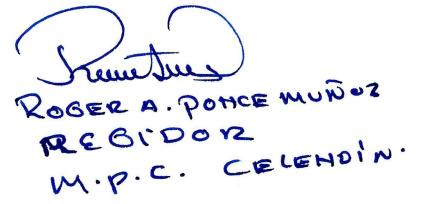 ROGER A. PONCE MUÑOZ
REGIDOR
M.P.C. CELENDÍN.